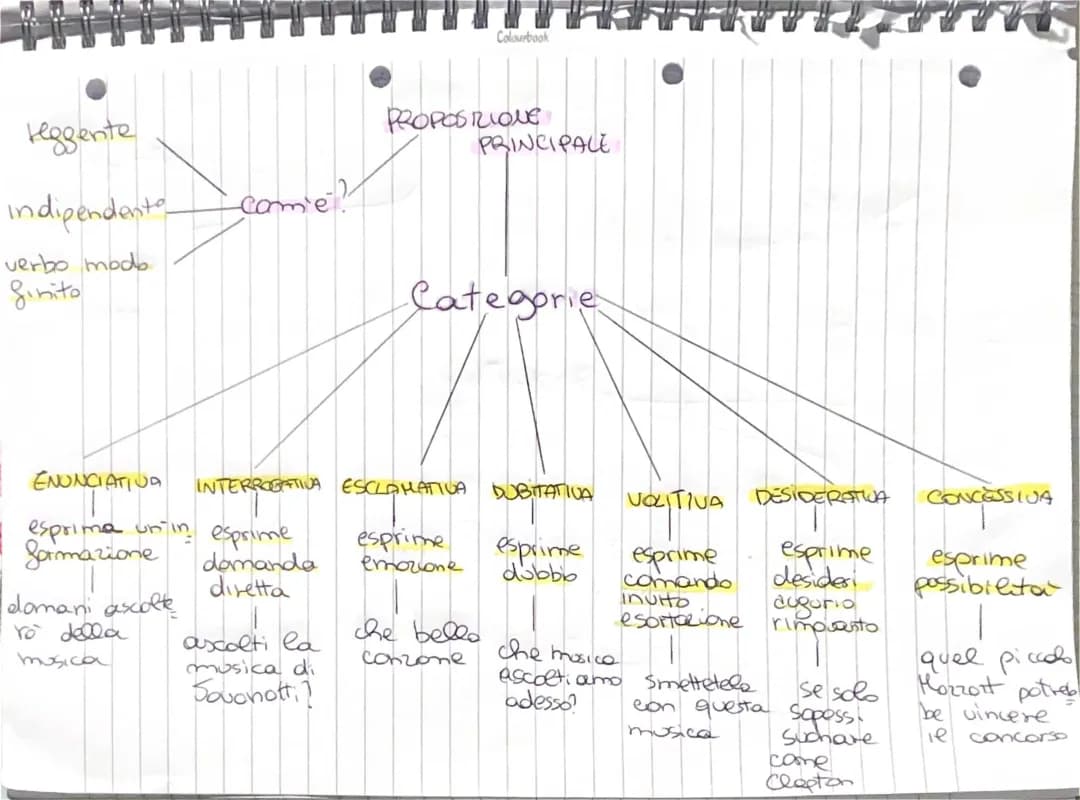 Colourbook
PROPOSIZIONE
PRINCIPALE
reggente
com'è?
indipendente
verbo modo
finito
Categorie
ENUNCIATIVA
esprima un'in
formazione
domani ascolte
rò della
musica
INTERROGATIVA
esprime
domanda
diretta
ascolti la
musica di
Jovanotti?
ESCLAMATIVA
esprime
emozione
che bella
canzone
DUBITATIVA
esprime
dubbio
che musica
ascoltiamo
adesso?
VOLITIVA
esprime
comando
invito
esortazione
smettetela
con questa
musica
DESIDERATIVA
esprime
desideri
augurio
rimpianto
se solo
sapessi
suonare
come
Clapton
CONCESSIVA
esprime
possibilità
quel piccolo
Mozzart potreb
be vincere
il concorso